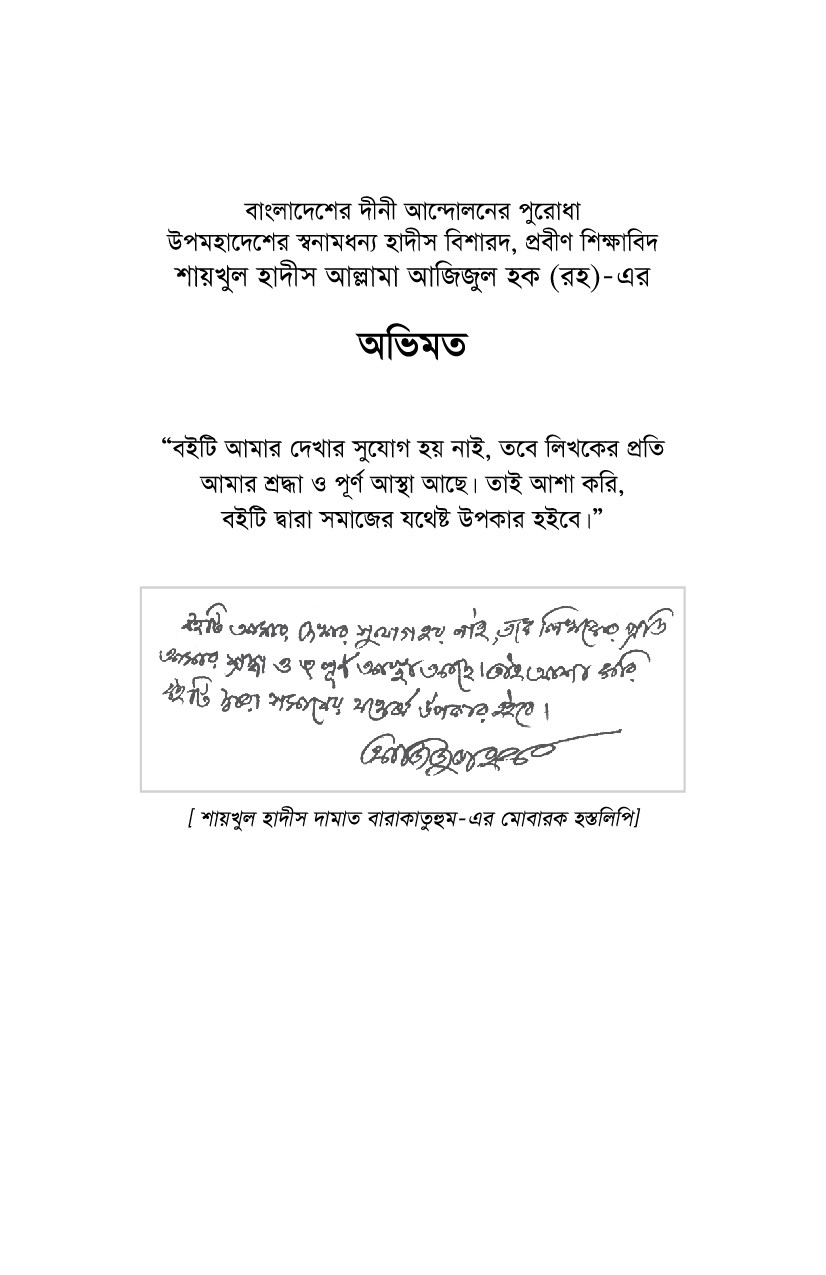 বাংলাদেশের দীনী আন্দোলনের পুরোধা
উপমহাদেশের স্বনামধন্য হাদীস বিশারদ, প্রবীণ শিক্ষাবিদ
শায়খুল হাদীস আল্লামা আজিজুল হক (রহ)-এর
অভিমত
“বইটি আমার দেখার সুযোগ হয় নাই, তবে লিখকের প্রতি
আমার শ্রদ্ধা ও পূর্ণ আস্থা আছে। তাই আশা করি,
বইটি দ্বারা সমাজের যথেষ্ট উপকার হইবে।”
বইটি আমার দেখার সুযোগ হয় নাই, তবে লিখকের প্রতি
আমার শ্রদ্ধা ও পূর্ণ আস্থা আছে। তাই আশা করি
বইটি দ্বারা সমাজের যথেষ্ট উপকার হইবে।
আজিজুল হক
[ শায়খুল হাদীস দামাত বারাকাতুহুম-এর মোবারক হস্তলিপি]